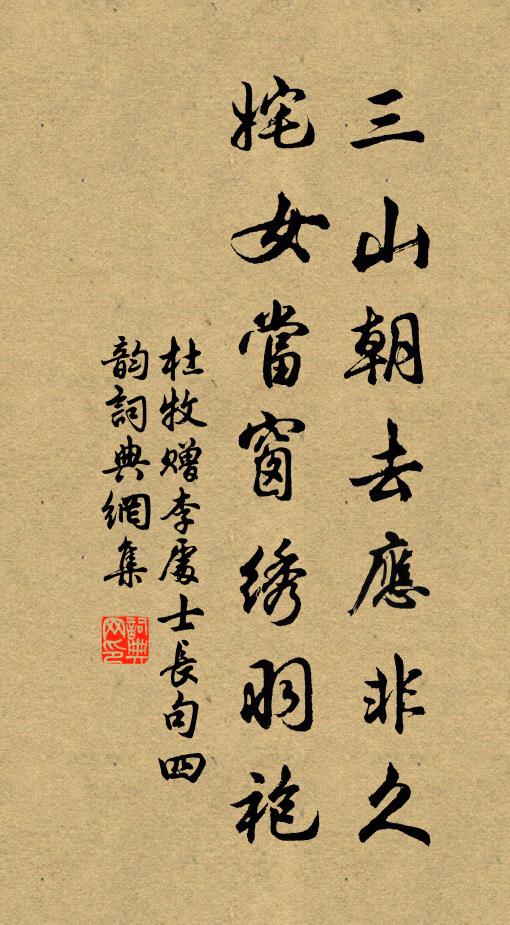 三山朝去應非久
姹女當窗绣羽袍
杜牧赠李處士長句四
韵詞典網集
詞典网印